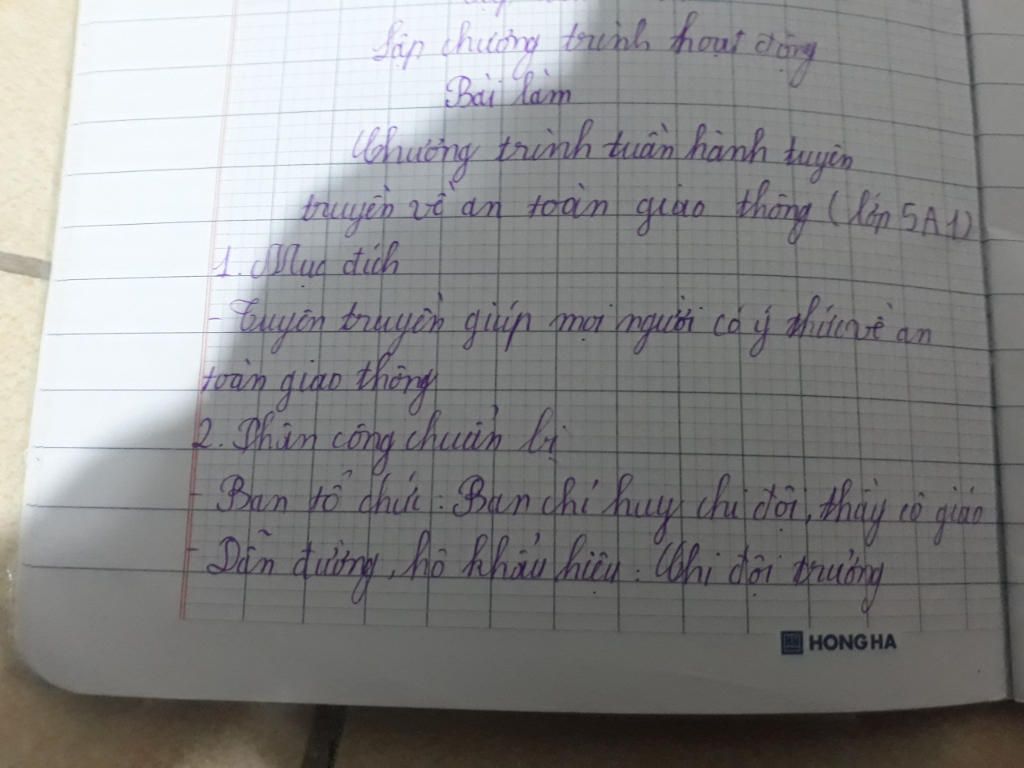 Lập chương trình hoạt động
Bài làm
Chương trình tuần hành tuyên
truyền về an toàn giao thông (lớp 5A1)
1. Mục đích
- Tuyên truyền giúp mọi người có ý thức về an
toàn giao thông
2. Phân công chuẩn bị
- Ban tổ chức: Ban chỉ huy chi đội, thầy cô giáo
- Dẫn đường, hô khẩu hiệu: Chi đội trưởng
HONG HA